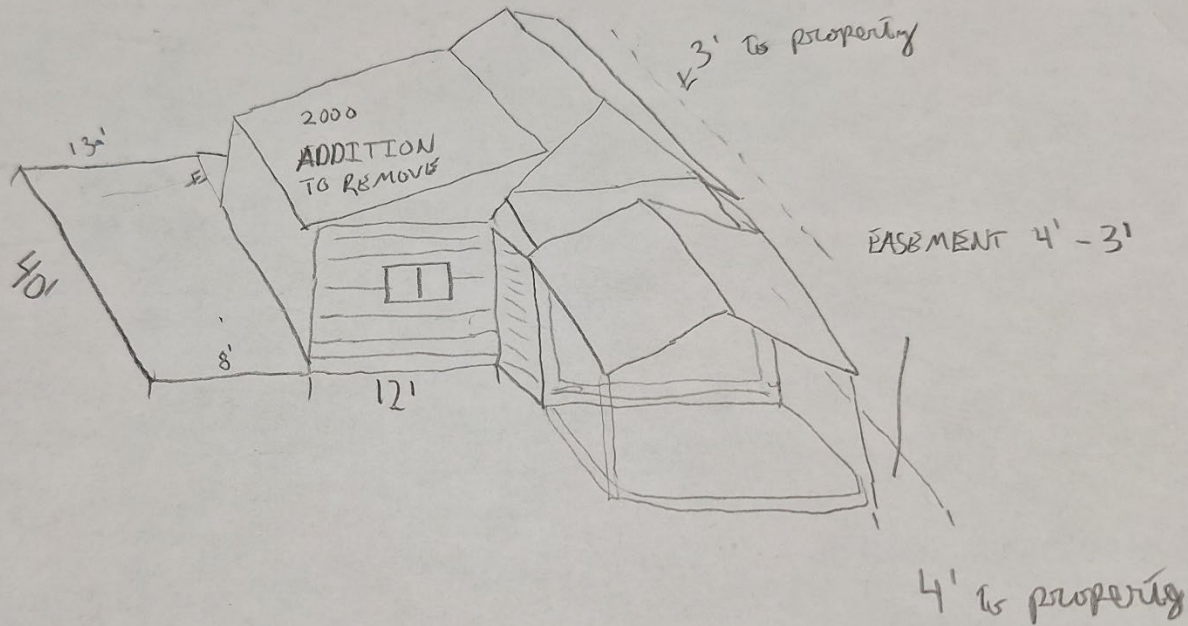 3' to property
2000
ADDITION
TO REMOVE
13'
EASEMENT 4' - 3'
40'
8'
12'
4' to property